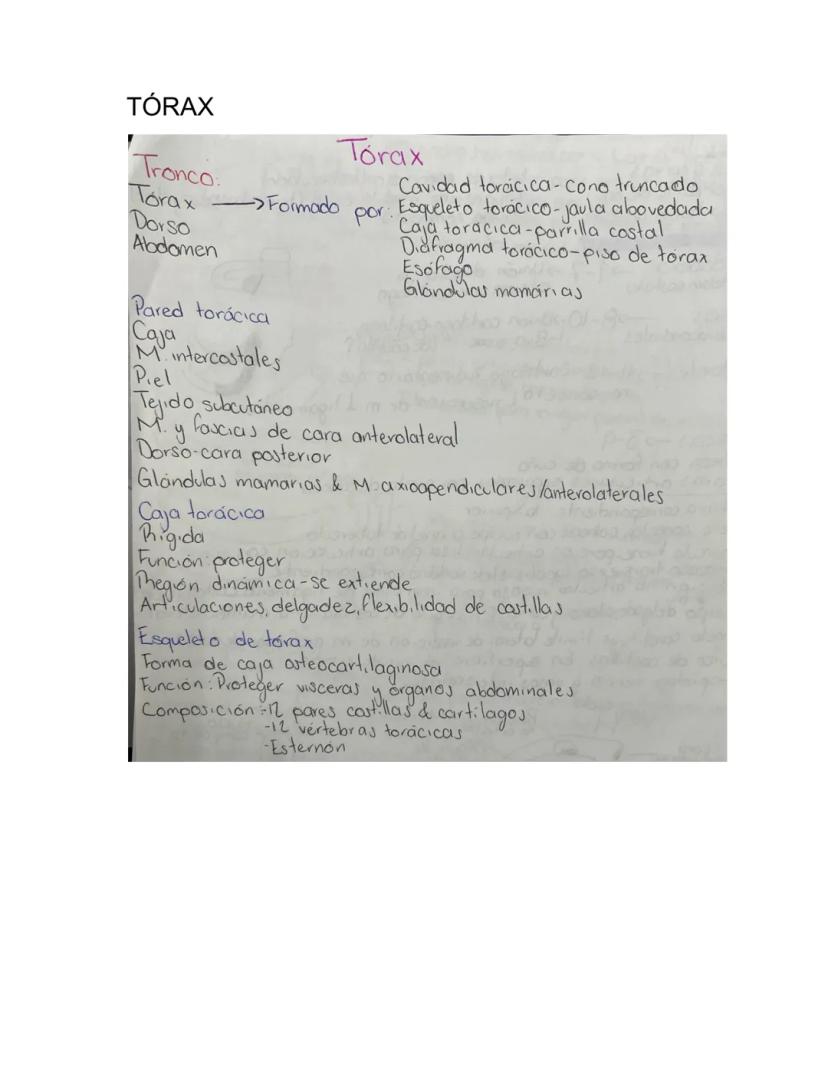 TÓRAX
Tórax
Tronco:
Tórax → Formado por: Cavidad torácica - cono truncado
Esqueleto torácico - jaula abovedada
Caja torácica - parrilla costal
Diáfragma torácico - piso de tórax
Esófago
Glándulas mamárias
Dorso
Abdomen
Pared torácica
Caja
M. intercostales
Piel
Tejido subcutáneo
M. y fascias de cara anterolateral
Dorso - cara posterior
Glándulas mamarias & M. axioapendiculares/anterolaterales
Caja torácica
Rígida
Función: proteger
Región dinámica - se extiende
Articulaciones, delgadez, flexibilidad de costillas
Esqueleto de tórax
Forma de caja osteocartilaginosa
Función: Proteger vísceras y órganos abdominales
Composición: -12 pares costillas & cartílagos
-12 vértebras torácicas
-Esternón